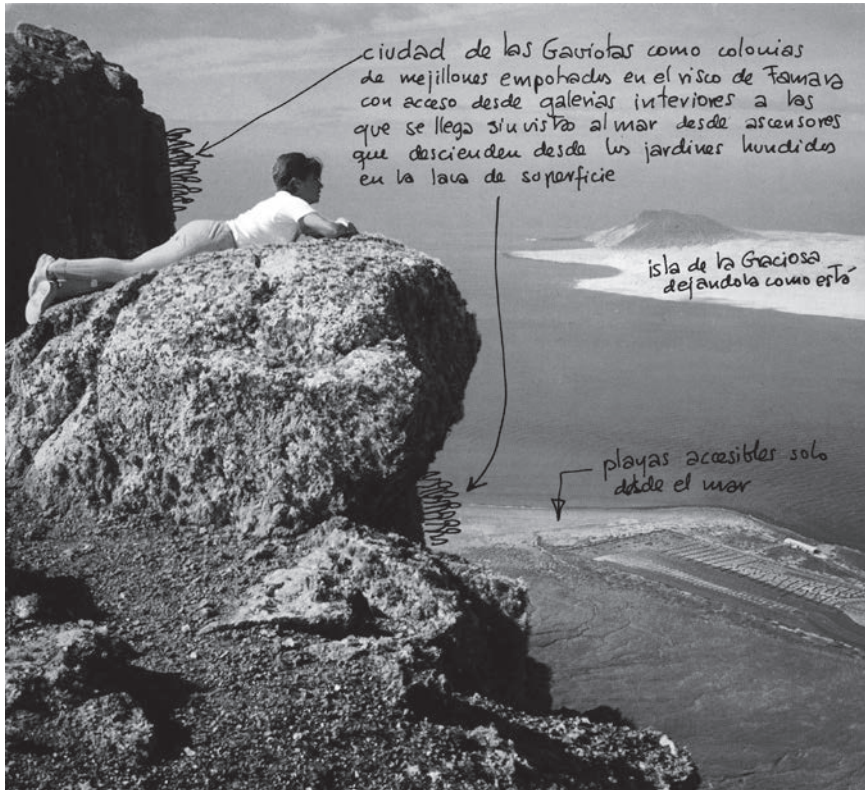 ciudad de las Gaviotas como colonias
de mejillones empotrados en el risco de Famara
con acceso desde galerías interiores a las
que se llega sin vistas al mar desde ascensores
que descienden desde los jardines hundidos
en la lava de superficie
isla de la Graciosa
dejandola como está
playas accesibles solo
desde el mar